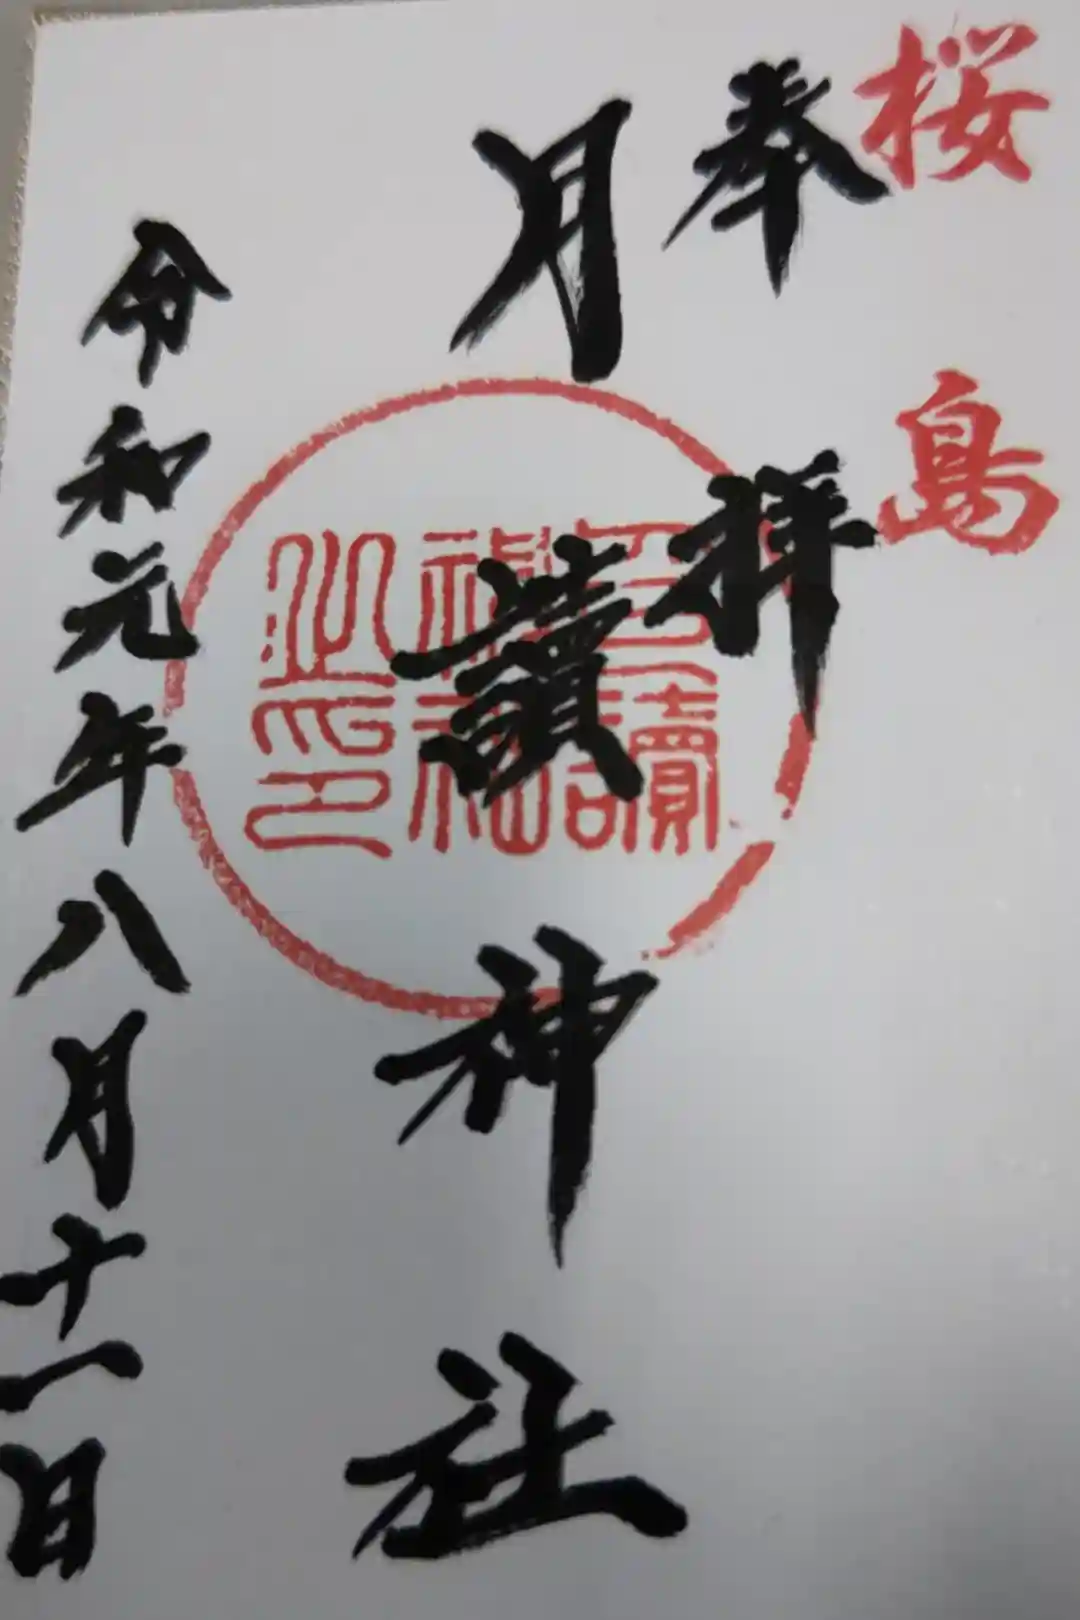 桜島
奉拝
月讀神社
月讀神社之印
令和元年八月十一日